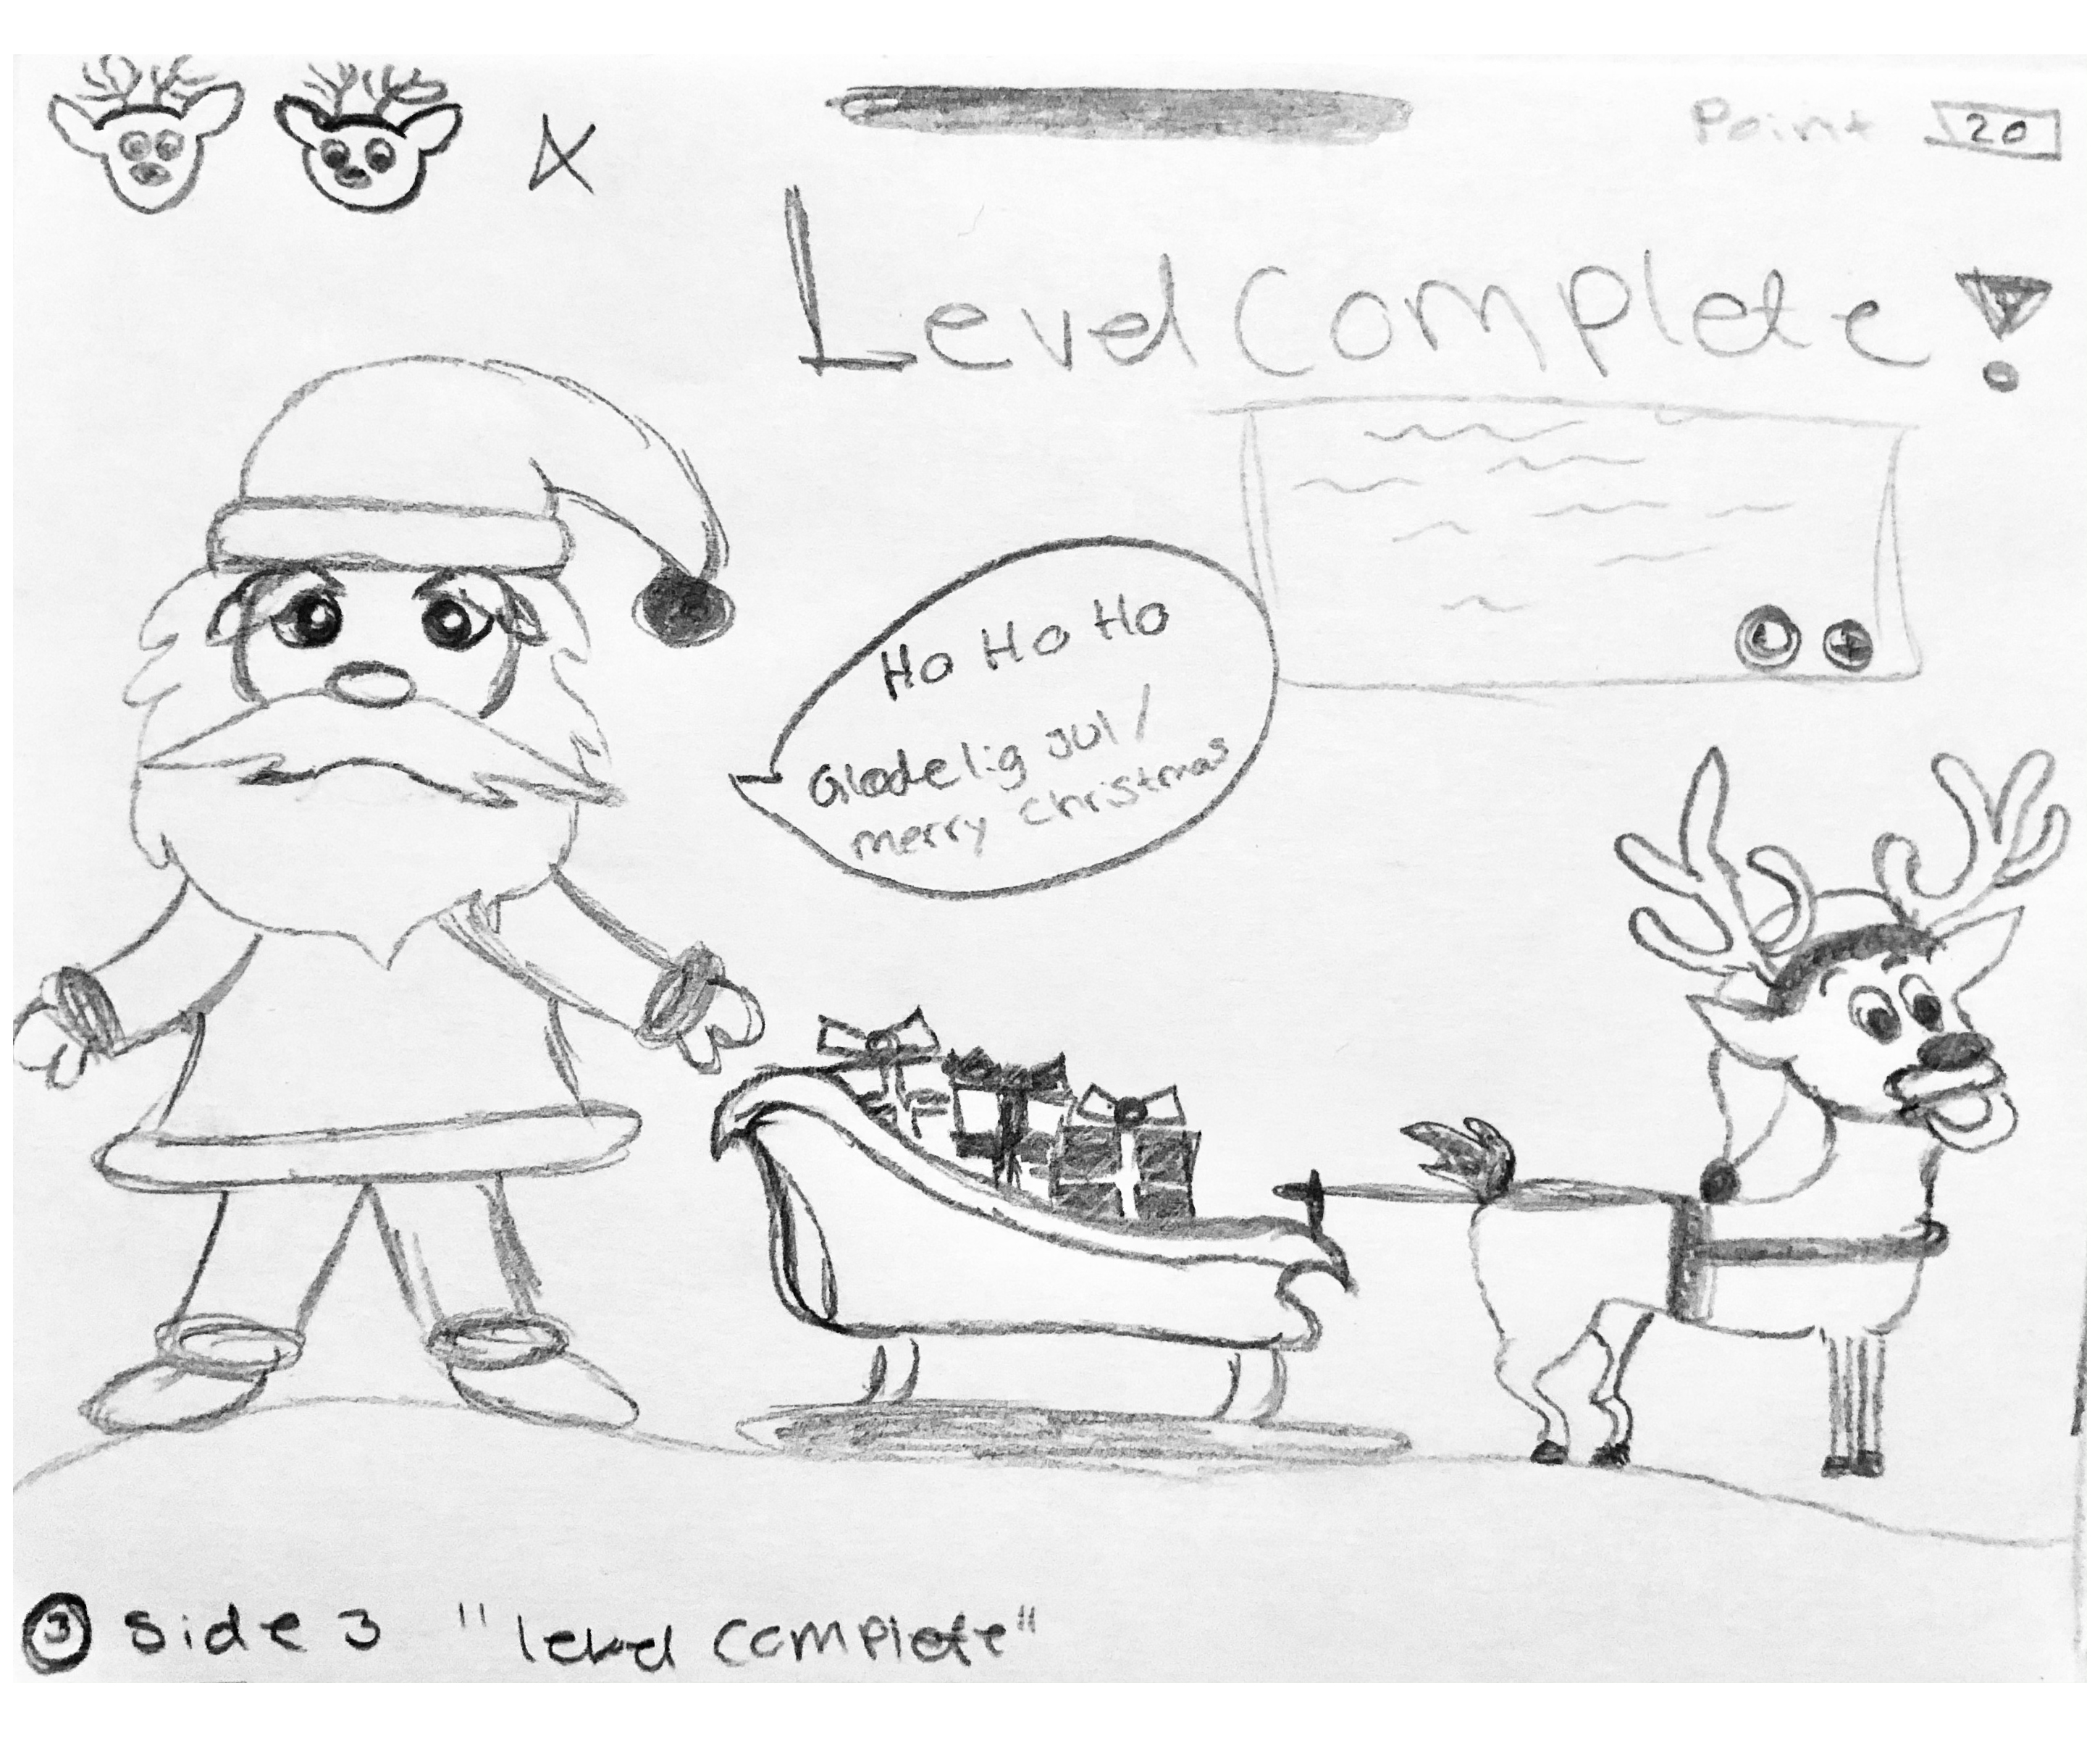 Point 20
Level Complete!
Ho Ho Ho
Gladelig Jul /
merry christmas
3 side 3 "level complete"